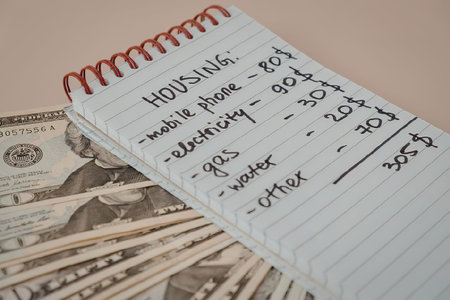 HOUSING:
-mobile phone - 80$
-electricity - 90$
- gas - 30$
- water - 20$
- other - 70$
305$
3057556A